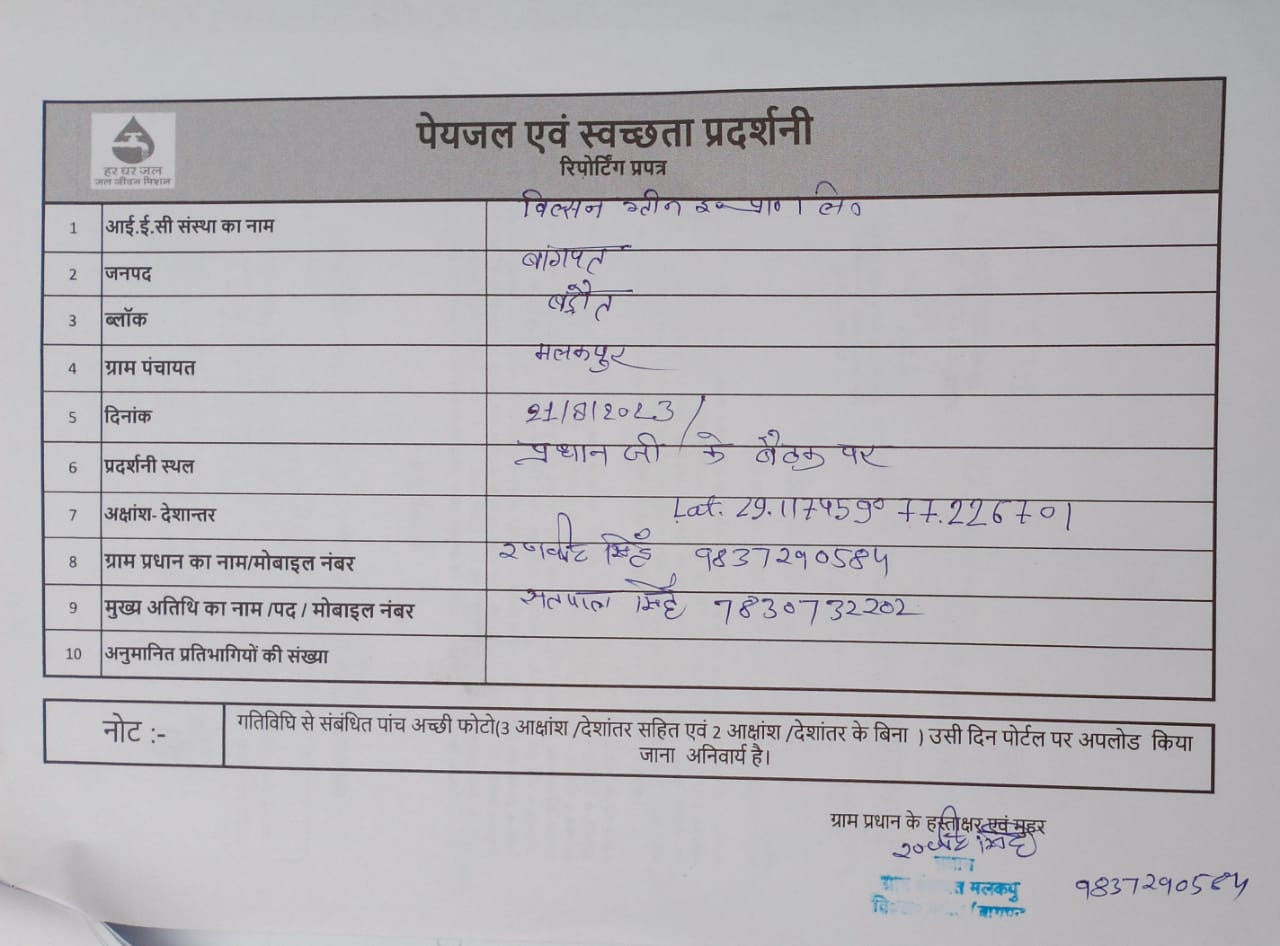 हर घर जल
जल जीवन मिशन
पेयजल एवं स्वच्छता प्रदर्शनी
रिपोर्टिंग प्रपत्र
1 आई.ई.सी संस्था का नाम विल्सन ग्रीन इ० प्रा० लि०
2 जनपद बागपत
3 ब्लॉक बड़ौत
4 ग्राम पंचायत मलकपुर
5 दिनांक 21/8/2023
6 प्रदर्शनी स्थल प्रधान जी के बैठक पर
7 अक्षांश- देशान्तर Lat. 29.117459° 77.226701
8 ग्राम प्रधान का नाम/मोबाइल नंबर सिंह 9837290584
9 मुख्य अतिथि का नाम /पद / मोबाइल नंबर सतपाल सिंह 7830732202
10 अनुमानित प्रतिभागियों की संख्या
नोट :- गतिविधि से संबंधित पांच अच्छी फोटो(3 आक्षांश /देशांतर सहित एवं 2 आक्षांश /देशांतर के बिना ) उसी दिन पोर्टल पर अपलोड किया
जाना अनिवार्य है।
ग्राम प्रधान के हस्ताक्षर एवं मुहर
सिंह
प्रधान
ग्राम मलकपु
9837290584
बागपत